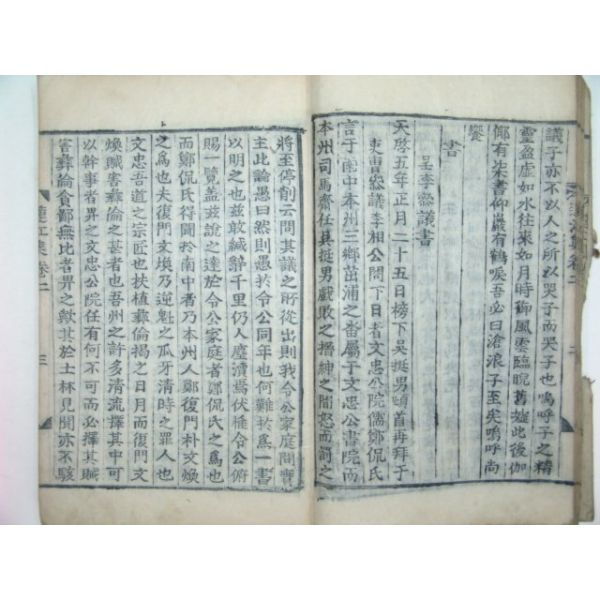 議子亦不以人之所以哭子而哭子也嗚呼子之精
靈盈虛如水往來如月時御風雲臨睨舊墟此後伽
倻有柒書仰巖有鶴唳吾必曰滄浪子至矣嗚呼尚
饗
書
呈李叅議書
天啓五年正月二十五日榜下吳挺男頓首再拜于
吏曹叅議李相公閤下日者文忠公院儒鄭侃氏
言于南中本州三鄉苗浦之畓屬于文忠公書院而
本州司馬齋任具挺男戲敗之搢紳之間怒而罰之
將至停削云問其議之所從出則我令公家庭間實
主此論愚曰然則愚於令公同年也何難於爲一書
以明之也玆敢緘辭千里仍人塵瀆焉伏惟令公俯
賜一覽盖玆說之達於令公家庭者鄭侃氏之爲也
而鄭侃氏得圖於南中者乃本州人鄭復門朴文煥
之爲也夫復門文煥乃逆魁之瓜牙清時之罪人也
文忠吾道之宗匠也扶植彛倫揭之日月而復門文
煥賊害彛倫之甚者也吾州之許多清流擇其中可
以幹事者畀之文忠公院任有何不可而必擇其賊
害彛倫貪鄙無比者畀之歟其於士林見聞亦不駭
蓮江集卷二
三